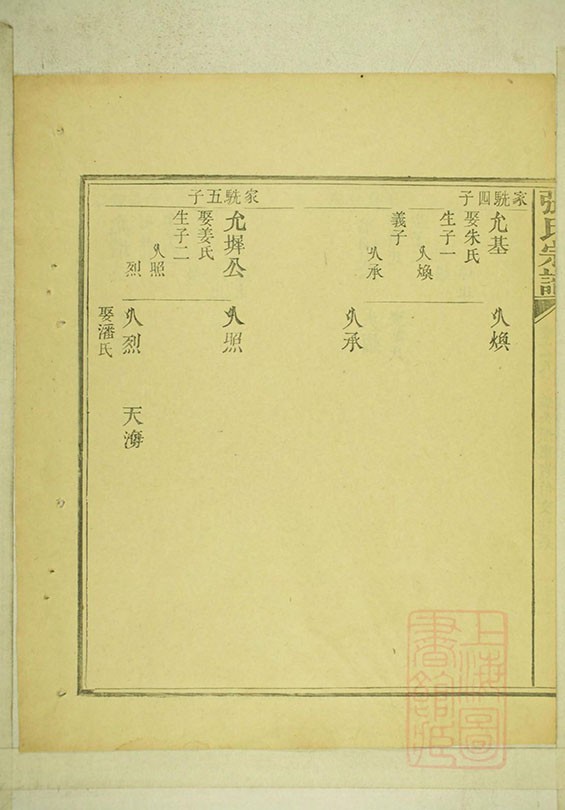 張氏宗譜
家駪四子
允基
娶朱氏
生子一
乆煥
義子
乆承
乆煥
乆承
家駪五子
允墀公
娶姜氏
生子二
乆照
烈
乆照
乆烈
娶潘氏
天海
上海圖
書館藏